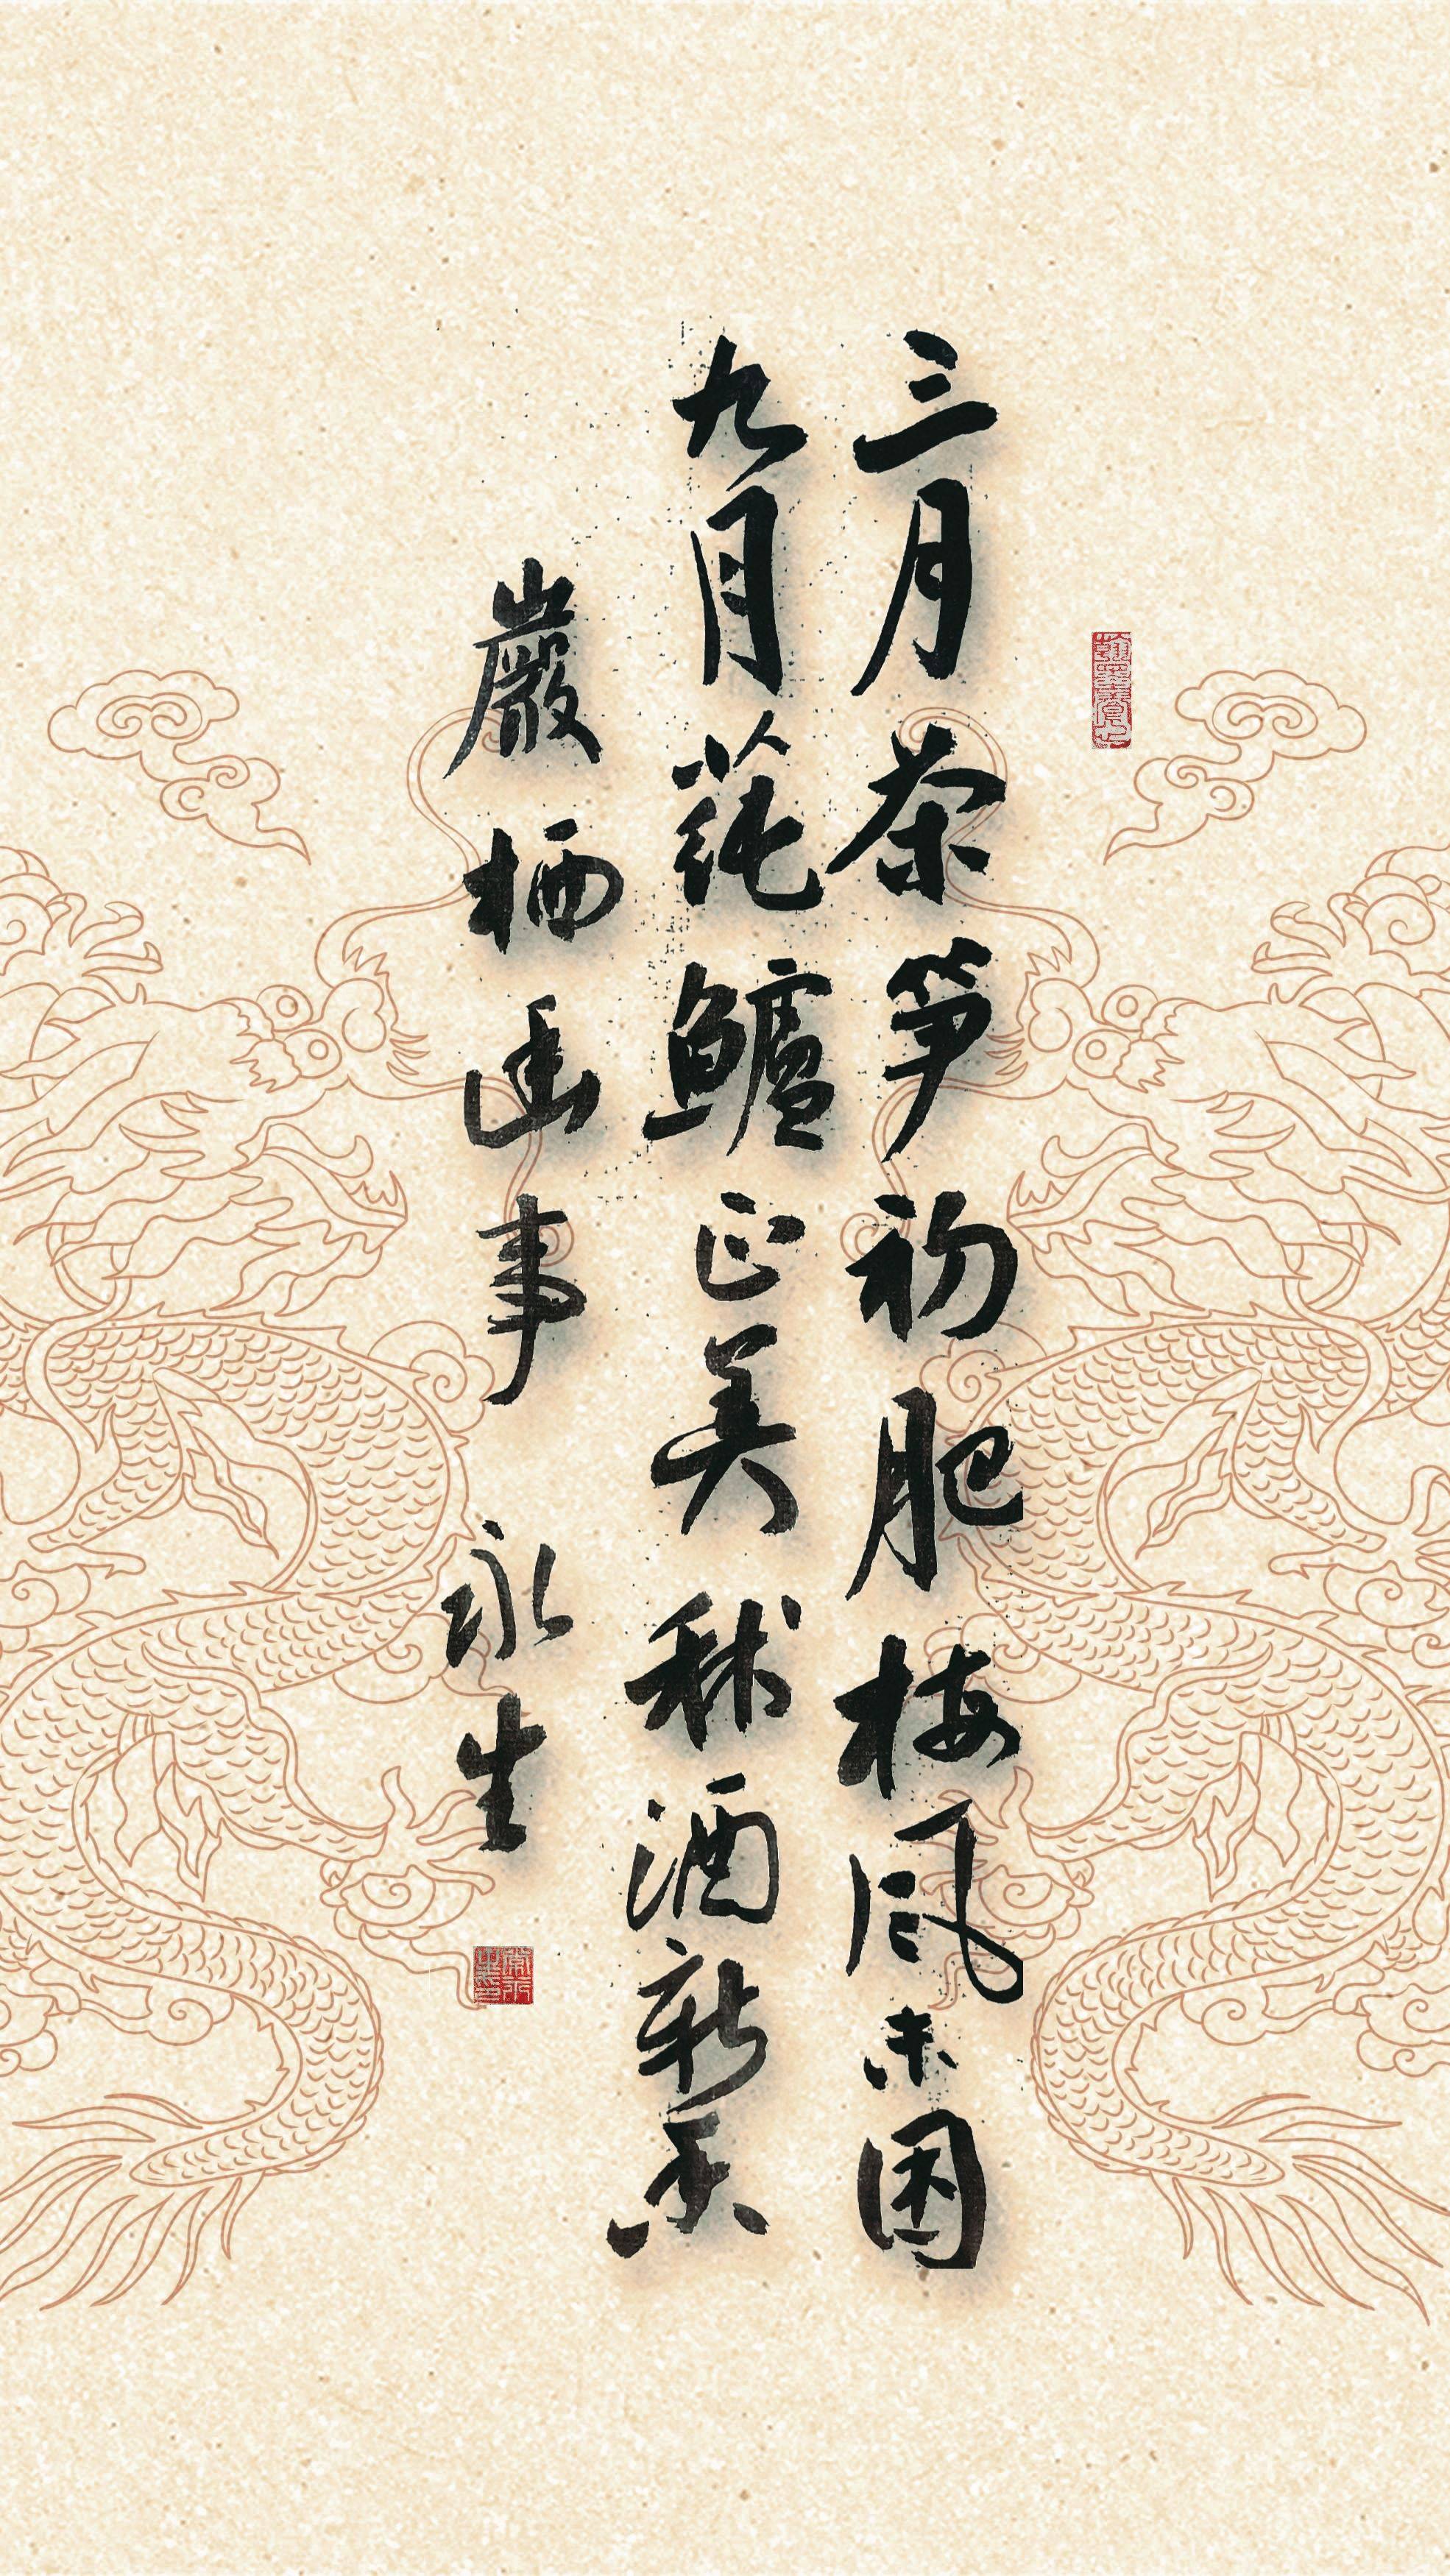 三月茶笋初肥梅风未困
九月莼鲈正美秫酒新香
巖栖幽事 永生